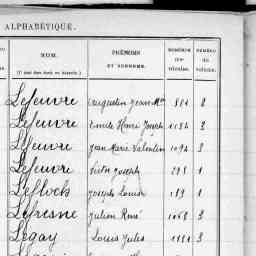 ALPHABÉTIQUE.
NOM. PRÉNOMS ET SURNOMS. NUMÉROS matricules. NUMÉRO du volume.
Lefeuvre Jean M. 551 2
Lefeuvre Emile Henri Joseph 1184 3
Lefeuvre Jean Marie Valentin 1094 3
Lefeuvre Victor Joseph 298 1
Lefloch Joseph Louis 189 1
Lefresne Julien René 1068 3
Legay Louis Jules 1151 3